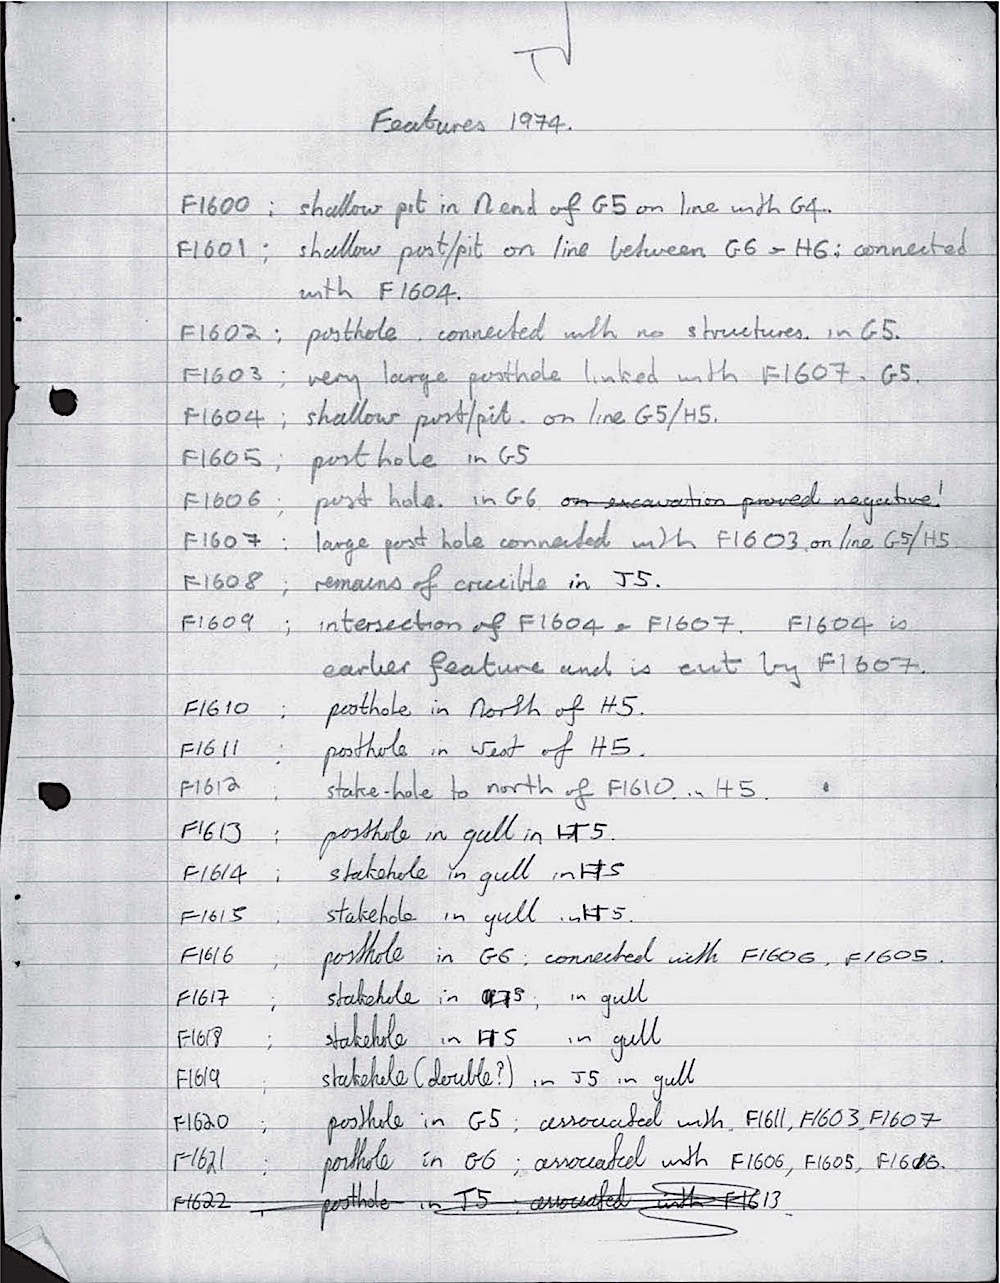 Features 1974.
F1600 ; shallow pit in N end of G5 on line with G4.
F1601 ; shallow post/pit on line between G6 - H6; connected
with F1604.
F1602 ; posthole. connected with no structures. in G5.
F1603 ; very large posthole linked with F1607. G5.
F1604 ; shallow post/pit. on line G5/H5.
F1605 ; post hole in G5
F1606 ; post hole. in G6 on excavation proved negative!
F1607 ; large post hole connected with F1603, on line G5/H5
F1608 ; remains of crucible in J5.
F1609 ; intersection of F1604 & F1607. F1604 is
earlier feature and is cut by F1607.
F1610 ; posthole in North of H5.
F1611 ; posthole in West of H5.
F1612 ; stake-hole to north of F1610 in H5.
F1613 ; posthole in gull in H5.
F1614 ; stakehole in gull in H5
F1615 ; stakehole in gull in H5.
F1616 ; posthole in G6 ; connected with F1606, F1605.
F1617 ; stakehole in ; in gull
F1618 ; stakehole in H5 in gull
F1619 ; stakehole (double?) in J5 in gull
F1620 ; posthole in G5 ; associated with F1611, F1603, F1607
F1621 ; posthole in G6 ; associated with F1606, F1605, F1616.
F1622 ; posthole in J5 ; associated with F1613